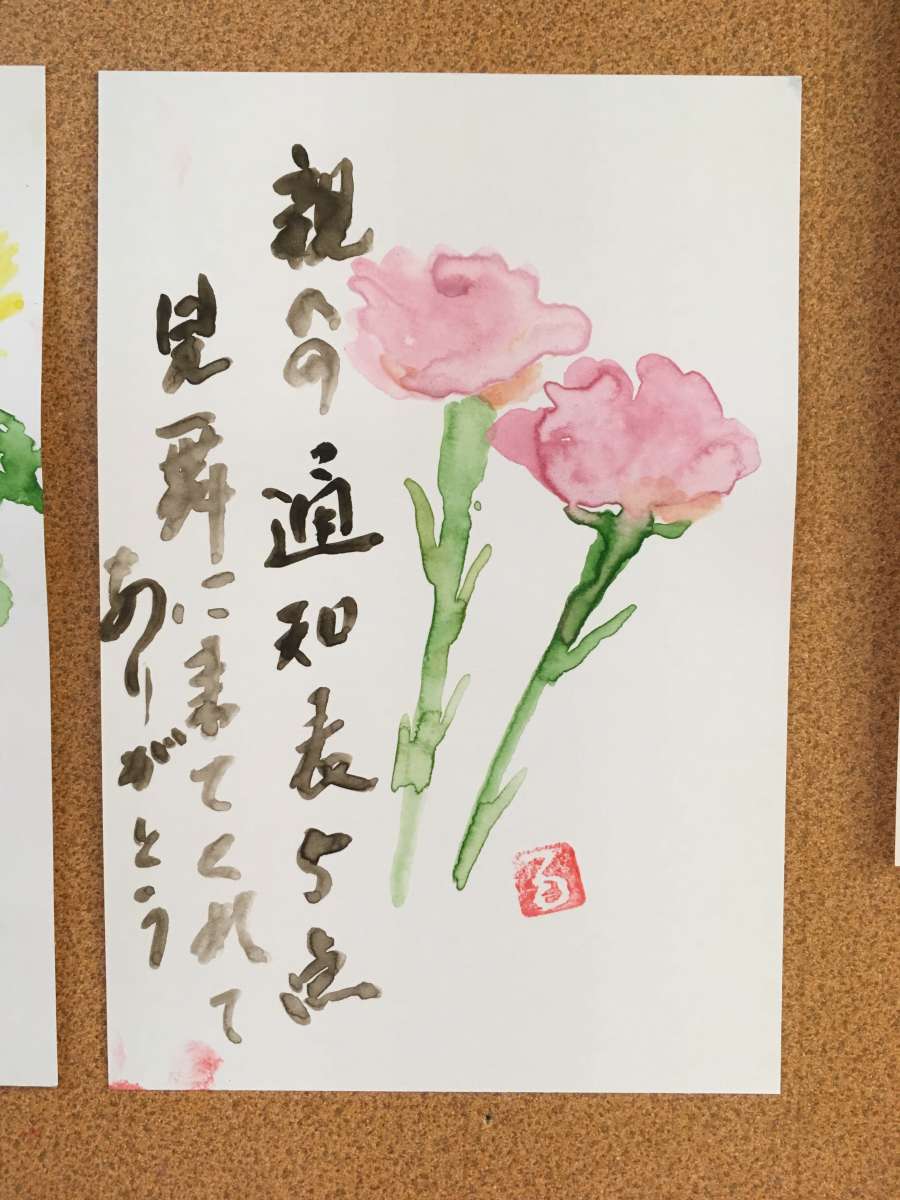 親への通知表5点
見舞に来てくれて
ありがとう
る